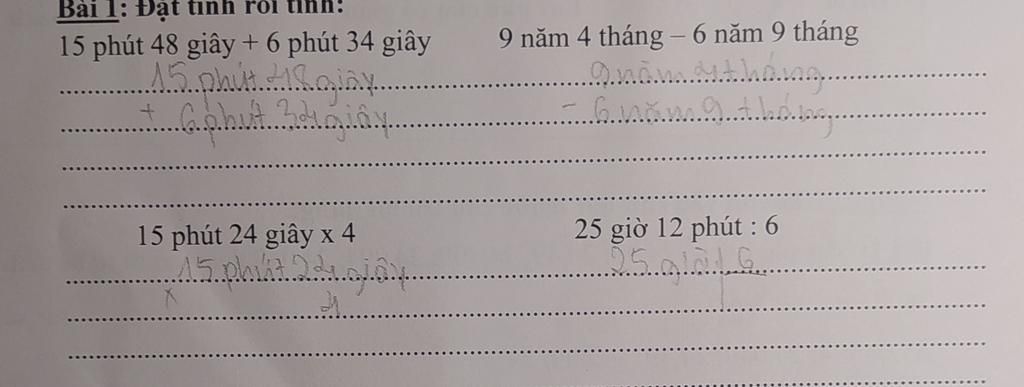 Bài 1: Đặt tính rồi tính:
15 phút 48 giây + 6 phút 34 giây
9 năm 4 tháng – 6 năm 9 tháng
15 phút 48 giây
9 năm 4 tháng
+ 6 phút 34 giây
- 6 năm 9 tháng
15 phút 24 giây x 4
25 giờ 12 phút : 6
15 phút 24 giây
25 giờ 6
x 4